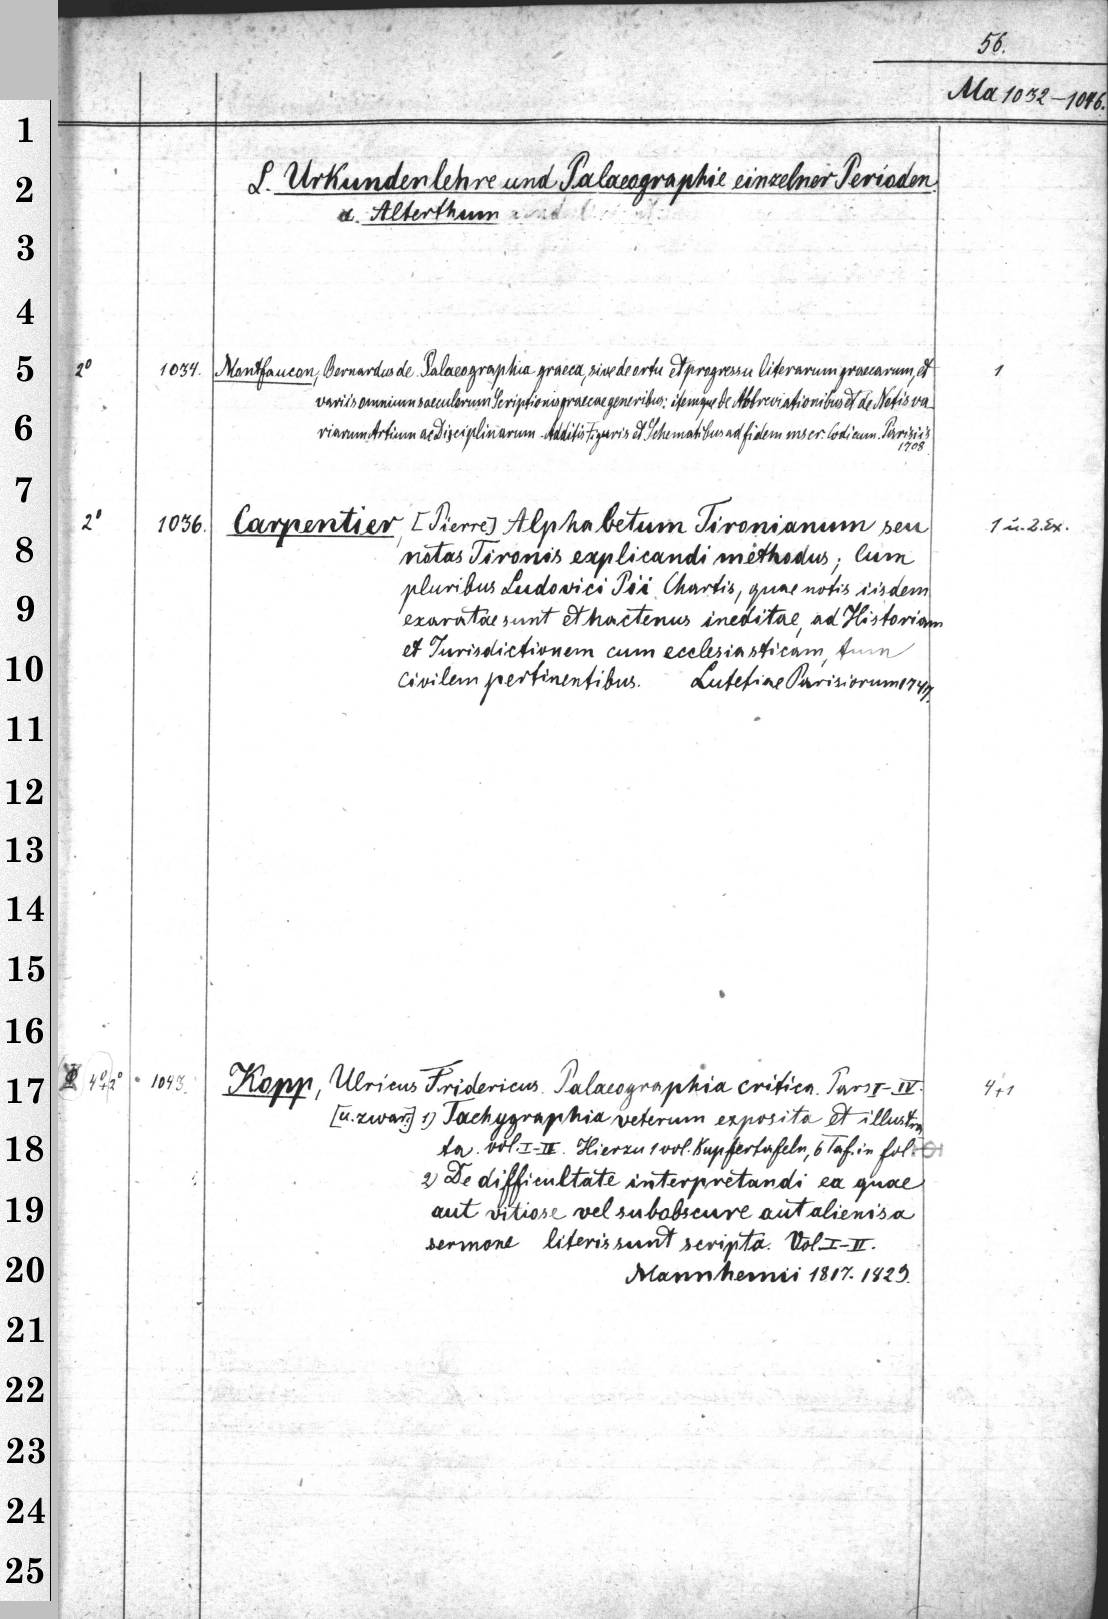 56.
Ma 1032-1046.
1
2
3
4
5
6
7
8
9
10
11
12
13
14
15
16
17
18
19
20
21
22
23
24
25
L. Urkundenlehre und Palaeographie einzelner Perioden.
a. Alterthum
2° 1034. Montfaucon, Bernardus de Palaeographia graeca, sive de ortu et progressu literarum graecarum, et 1
variis omnium saeculorum Scriptionis graecae generibus: itemque de Abbreviationibus et de Notis va-
riarum Artium ac Disciplinarum. Additis Figuris et Schematibus ad fidem mscr. Codicum. Parisiis
1708.
2° 1036. Carpentier, [Pierre] Alphabetum Tironianum seu 1 u. 2. Ex.
notas Tironis explicandi methodus; Cum
pluribus Ludovici Pii Chartis, quae notis iisdem
exaratae sunt et hactenus ineditae, ad Historiam
et Jurisdictionem cum ecclesiasticam, tum
civilem pertinentibus. Lutetiae Parisiorum 1747.
4° + 2° 1043. Kopp, Ulricus Fridericus. Palaeographia critica. Pars I-IV. 4+1
[u. zwar:] 1) Tachygraphia veterum exposita et illustra
ta. vol. I-II. Hierzu 1 vol. Kupfertafeln, 6 Taf. in fol.
2) De difficultate interpretandi ea quae
aut vitiose vel subobscure aut alienis a
sermone literis sunt scripta. Vol. I-II.
Mannhemii 1817. 1829.